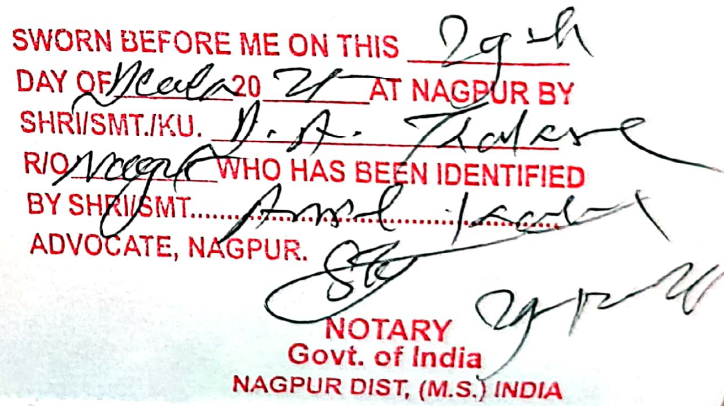 SWORN BEFORE ME ON THIS 29th
DAY OF 20 21 AT NAGPUR BY
SHRI/SMT./KU. D. A.
R/O Nagpur WHO HAS BEEN IDENTIFIED
BY SHRI/SMT..........
ADVOCATE, NAGPUR.
NOTARY
Govt. of India
NAGPUR DIST, (M.S.) INDIA